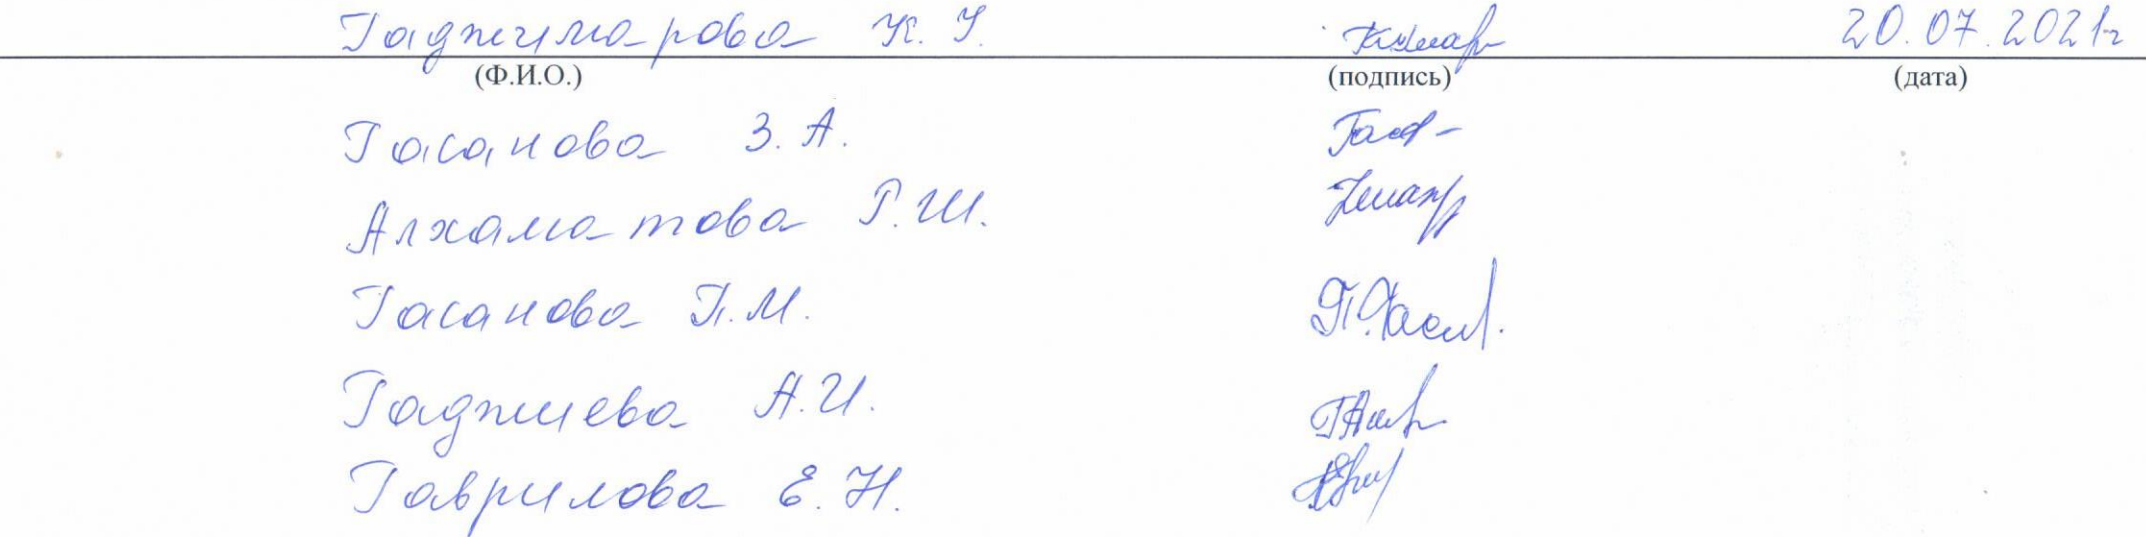 Гаджимарова К. У. 20.07.2021г
(Ф.И.О.) (подпись) (дата)
Гасанова З. А.
Алхаматова Г. Ш.
Гасанова П. М.
Гаджиева А. И.
Гаврилова Е. Н.